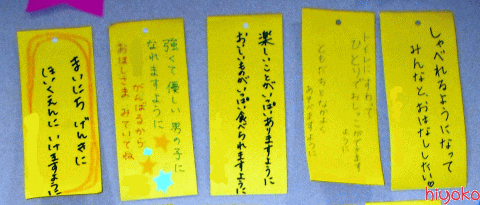 しゃべれるようになって
みんなと、おはなししたい♡
トイレにすわって
ひとりでおしっこができます
ように
ともだちとなかよく
あそべますように
楽しいことがいっぱいありますように
おいしいものがいっぱい食べられますように
強くて優しい男の子に
なれますように
がんばるから
おほしさまみていてね
まいにち げんきに
ほいくえんに いけますように
hiyoko